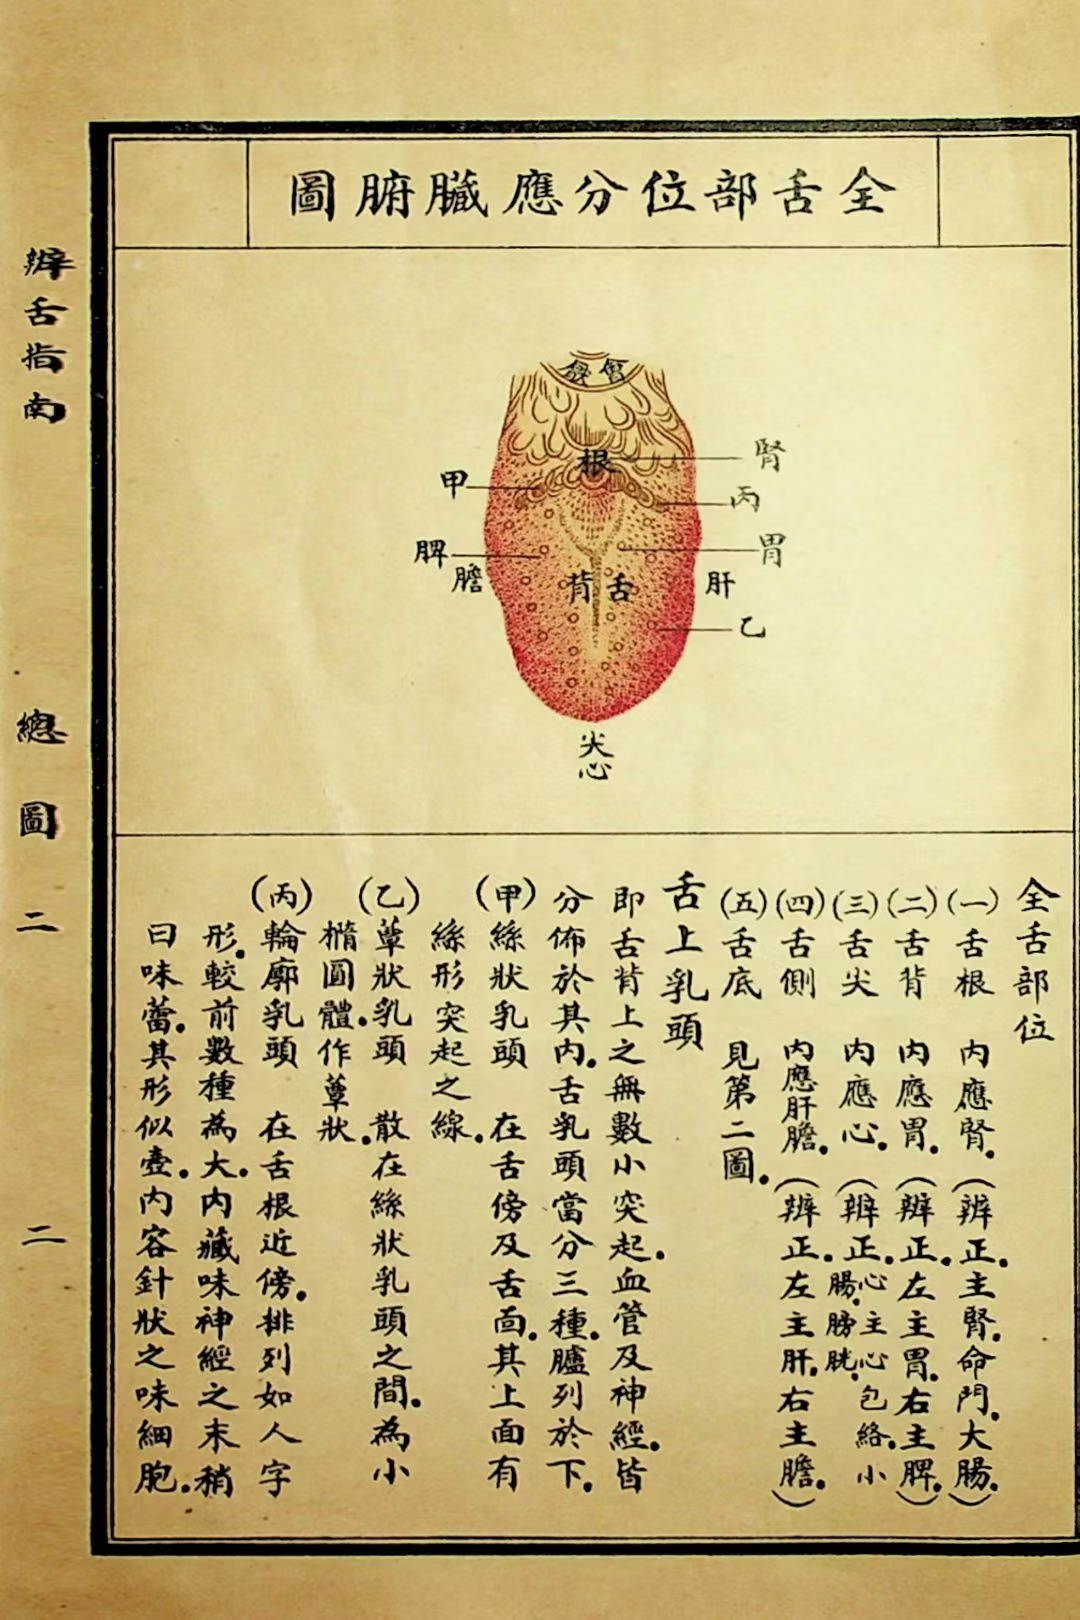 全舌部位分應臟腑圖
會厭
根
腎
甲
丙
脾
胃
膽
舌背
肝
乙
尖
心
全舌部位
(一)舌根 內應腎.(辨正.主腎.命門.大腸.)
(二)舌背 內應胃.(辨正.左主胃.右主脾.)
(三)舌尖 內應心.(辨正.心主心包絡.小腸.膀胱.)
(四)舌側 內應肝膽.(辨正.左主肝.右主膽.)
(五)舌底 見第二圖.
舌上乳頭
即舌背上之無數小突起.血管及神經.皆
分佈於其內.舌乳頭當分三種.臚列於下.
(甲)絲狀乳頭 在舌傍及舌面.其上面有
絲形突起之線.
(乙)蕈狀乳頭 散在絲狀乳頭之間.為小
橢圓體.作蕈狀.
(丙)輪廓乳頭 在舌根近傍.排列如人字
形.較前數種為大.內藏味神經之末稍
曰味蕾.其形似壺.內容針狀之味細胞.
辨舌指南
總圖二
二